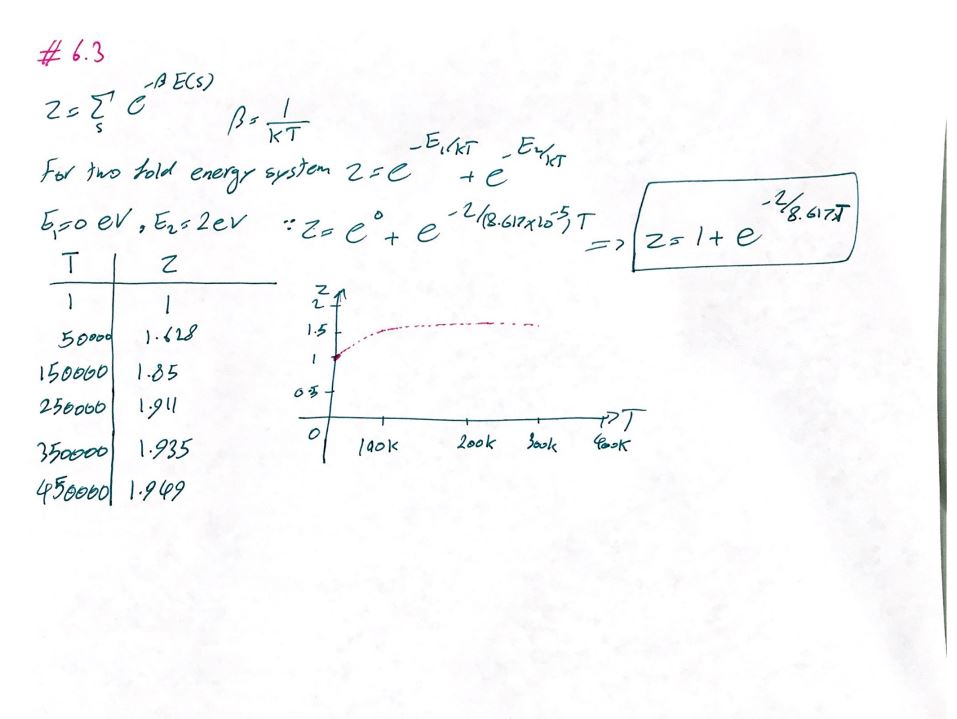 # 6.3
Z = Σ_s e^{-β E(s)}    β = 1/KT
For two fold energy system Z = e^{-E₁/KT} + e^{-E₂/KT}
E₁=0 eV, E₂=2ev ∵ Z = e^0 + e^{-2/(8.617x10^{-5})T} => Z = 1 + e^{-2/8.617xT}
T | Z
1 | 1
50000 | 1.628
150000 | 1.85
250000 | 1.911
350000 | 1.935
450000 | 1.949
Z
2
1.5
1
0.5
0
100K 200K 300K 400K
T